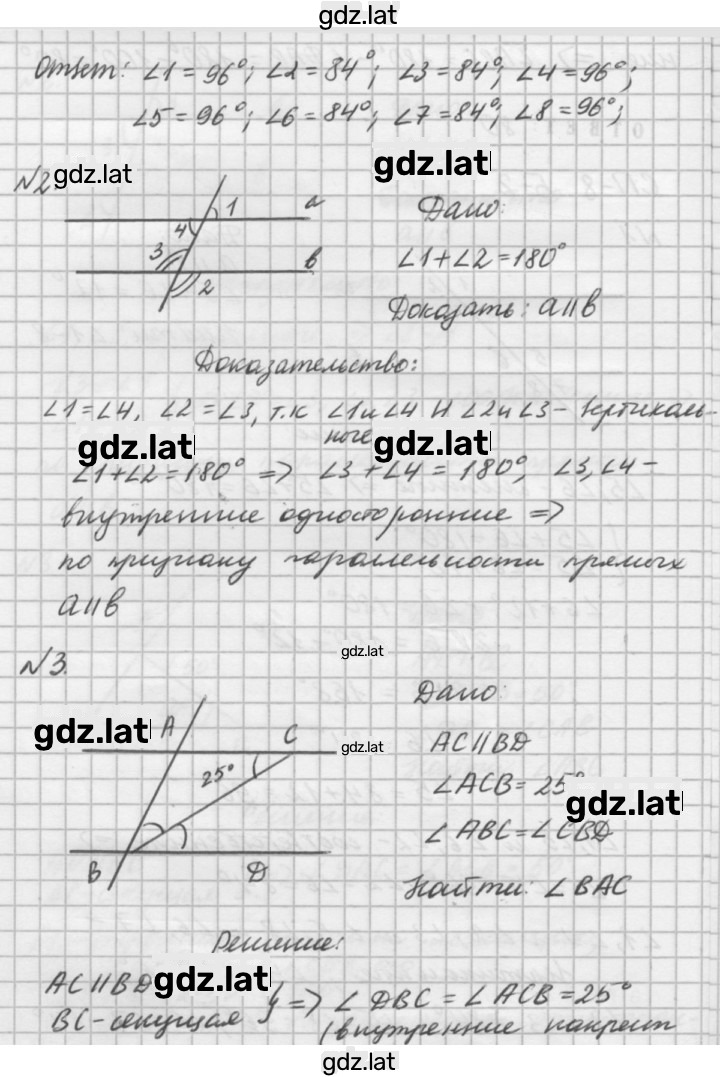 gdz.lat
Ответ: ∠1 = 96°; ∠2 = 84°; ∠3 = 84°; ∠4 = 96°;
∠5 = 96°; ∠6 = 84°; ∠7 = 84°; ∠8 = 96°;
gdz.lat
№2
gdz.lat
1 a
4
3 b
2
Дано:
∠1+∠2 = 180°
Доказать: a||b
Доказательство:
∠1 = ∠4, ∠2 = ∠3, т.к ∠1 и ∠4 и ∠2 и ∠3 - вертикаль-
ные
gdz.lat
gdz.lat
∠1+∠2 = 180° => ∠3 + ∠4 = 180°, ∠3, ∠4 -
внутренние односторонние =>
по признаку параллельности прямых
a||b
gdz.lat
№3.
gdz.lat
A C
gdz.lat
25°
B D
Дано:
AC||BD
∠ACB = 25°
gdz.lat
∠ABC = ∠CBD
Найти: ∠BAC
Решение:
AC||BD
gdz.lat
BC-секущая } => ∠DBC = ∠ACB = 25°
(внутренние накрест
gdz.lat